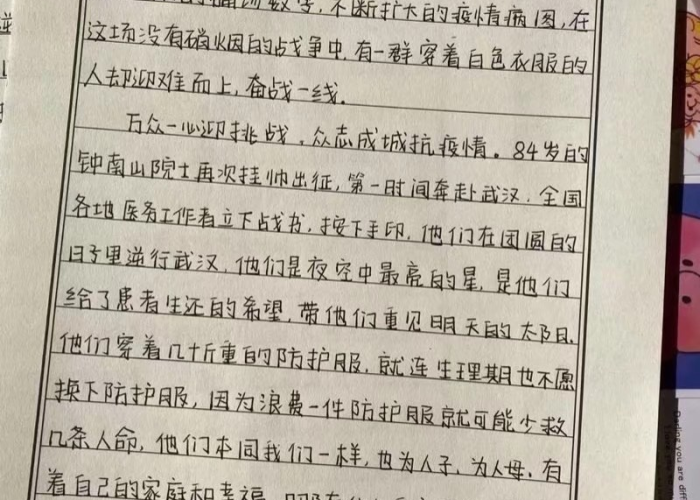 数字,不断扩大的疫情病图,在
这场没有硝烟的战争中,有一群穿着白色衣服的
人却迎难而上,奋战一线.
万众一心迎挑战,众志成城抗疫情。84岁的
钟南山院士再次挂帅出征,第一时间奔赴武汉.全国
各地医务工作者立下战书,按下手印,他们在团圆的
日子里逆行武汉,他们是夜空中最亮的星,是他们
给了患者生还的希望,带他们重见明天的太阳.
他们穿着几十斤重的防护服,就连生理期也不愿
换下防护服,因为浪费一件防护服就可能少救
几条人命,他们本同我们一样,也为人子、为人母、有
着自己的家庭和幸福
Darling you are di